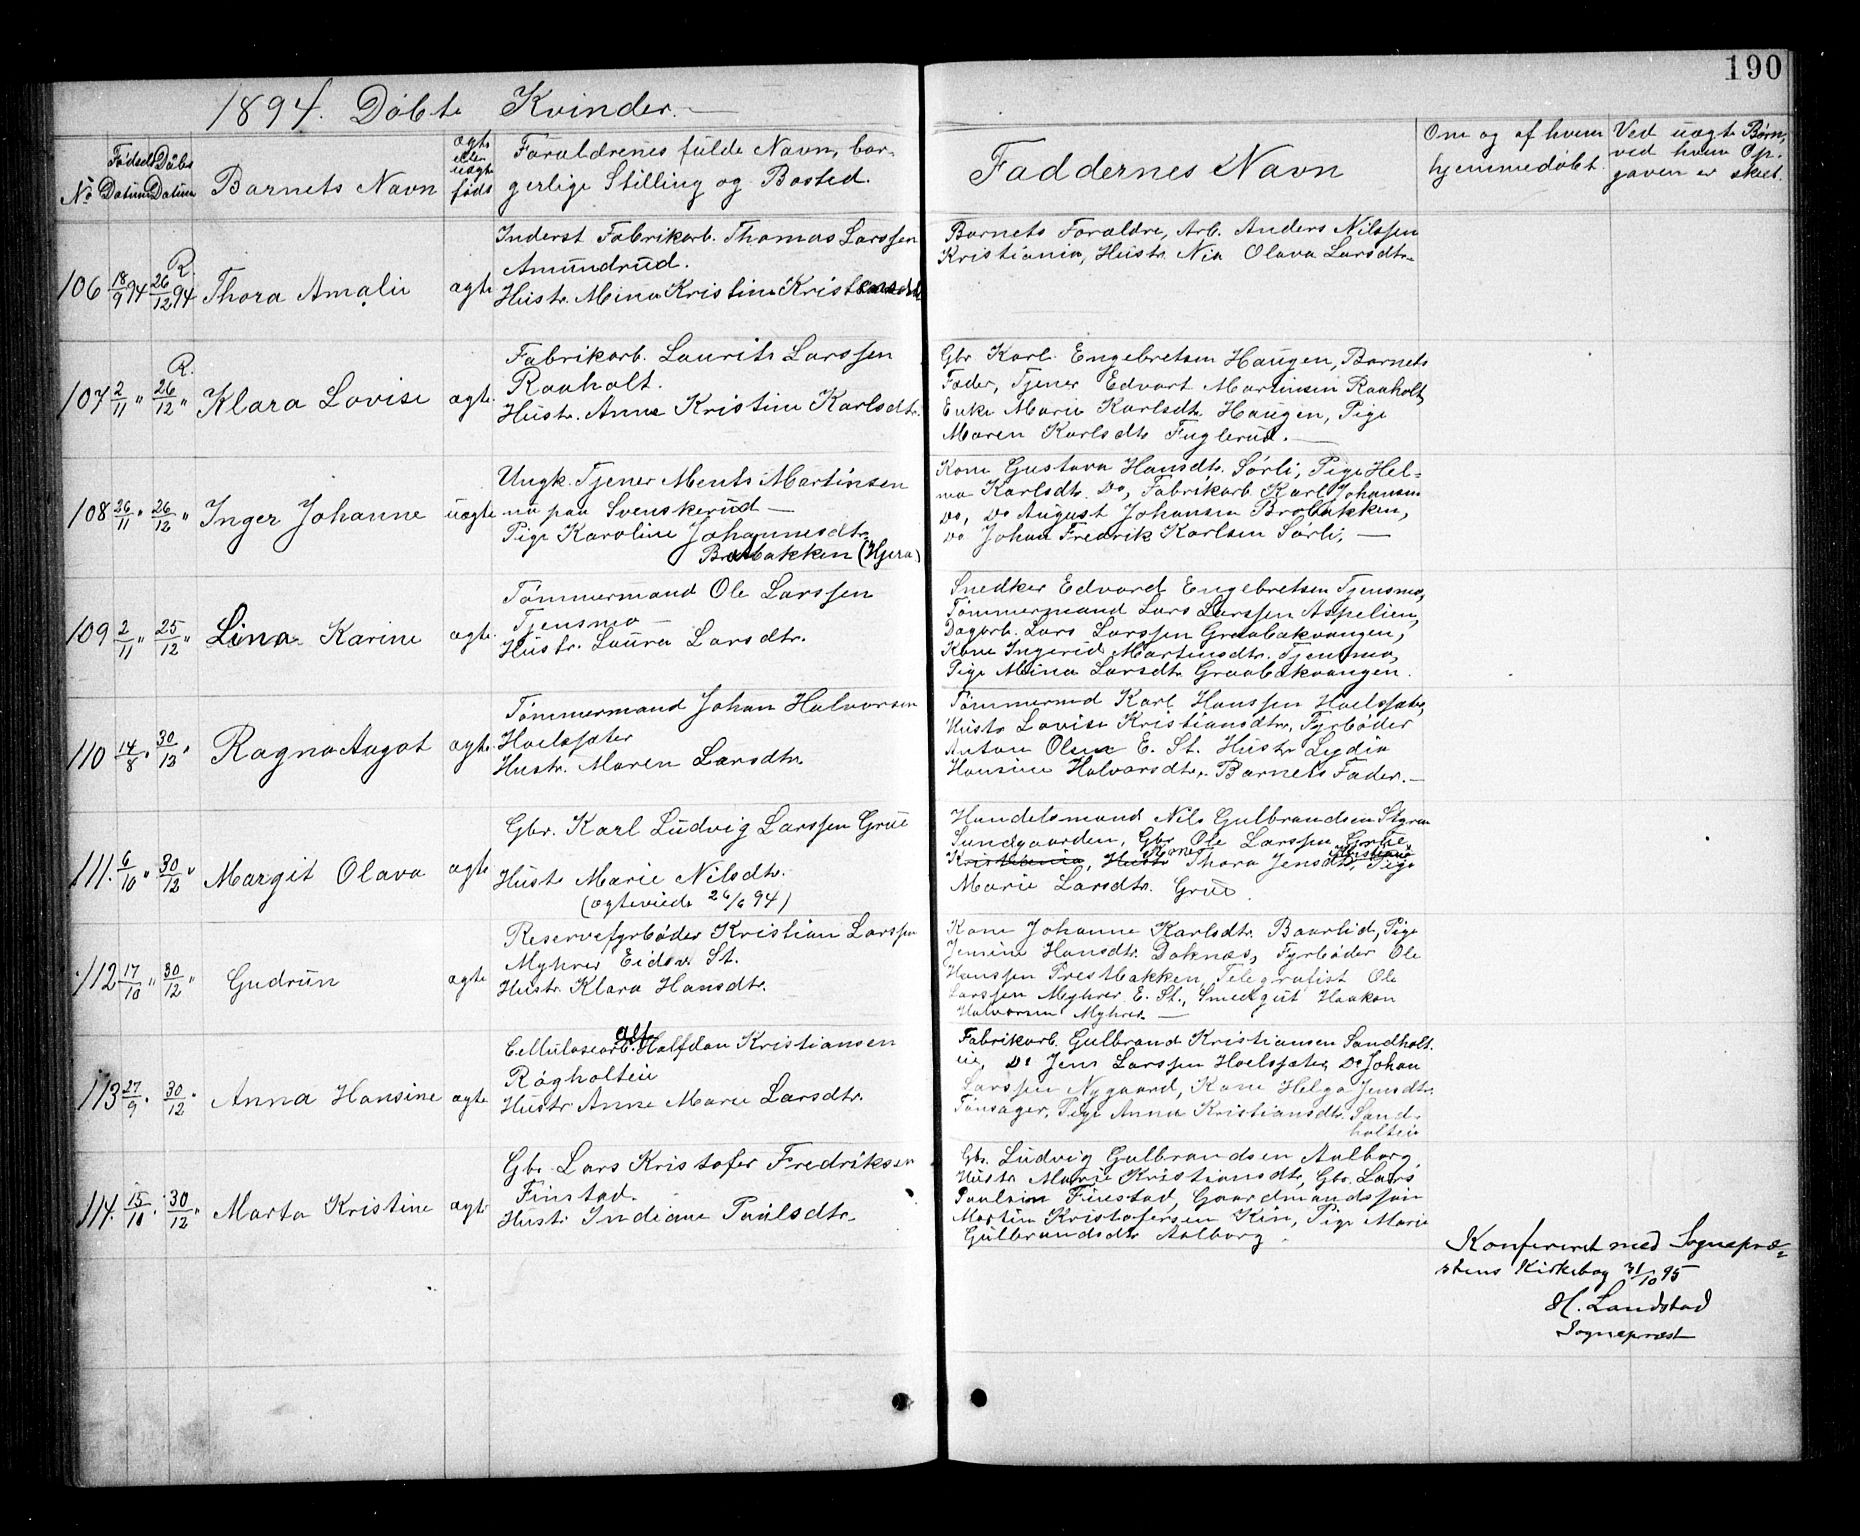 190
1894. Døbte Kvinder.
No Fødsels Datum Døbs Datum Barnets Navn ægte eller uægte føds Forældrenes fulde Navn, bor-
gerlige Stilling og Bosted.
Faddernes Navn
Om og af hvem hjemmedøbt
Ved uægte Børn, ved hvem Op-
gaven er skeet.
106 18/9 94 R. 26/12 94 Thora Amalie ægte
Inderst Fabrikarb. Thomas Larssen
Amundrud.
Hustr. Mina Kristine
Barnets Forældre, Arb. Anders Nilssen
Kristiania, Hustr. Nia Olava Larsdtr.
107 2/11 " R. 26/12 " Klara Lovise ægte
Fabrikarb. Laurits Larssen
Raaholt.
Hustr. Anne Kristine Karlsdtr.
Gbr Karl Engebretsen Haugen, Barnets
Fader, Tjener Edvart Martinsen Raaholt,
Enke Marie Karlsdtr. Haugen, Pige
Maren Karlsdtr Fuglerud. —
108 26/11 " 26/12 " Inger Johanne uægte
Ungk. Tjener Ments Martinsen
nu paa Svenskerud —
Pige Karoline Johannesdtr.
Brobakken (Hjera)
Kone Gustava Hansdtr. Sørli, Pige Hel-
ma Karlsdtr. Do, Fabrikarb. Karl Johansen
Do, Do August Johansen Brobakken,
Do Johan Fredrik Karlsen Sørli, —
109 2/11 " 25/12 " Lina Karine ægte
Tømmermand Ole Larssen
Tjensmo —
Hustr. Laura Larsdtr.
Snedker Edvard Engebretsen Tjensmo,
Tømmermand Lars Larssen Aspelien,
Dagarb. Lars Larssen Graabækvangen,
Kone Ingerid Martinsdtr. Tjensmo,
Pige Mina Larsdtr Graabækvangen.
110 14/8 " 30/12 " Ragna Aagot ægte
Tømmermand Johan Halvorsen
Hoelsjæter
Hustr. Maren Larsdtr
Tømmermd Karl Hanssen Hoelsjæter,
Hustr Lovise Kristiansdtr, Fyrbøder
Anton Olsen E. St. Hustr Lydia
Hansine Halvorsdtr. Barnets Fader. —
111. 6/10 " 30/12 " Margit Olava ægte
Gbr. Karl Ludvig Larssen Grue
Hustr Marie Nilsdtr.
(ægteviede 26/6 94)
Handelsmand Nils Gulbrandsen Styren
Sundgaarden, Gbr Ole Larssen Grue
Kristiania, Hustr Thora Jensdtr, Kristiania Pige
Marie Larsdtr. Grue.
112 17/10 " 30/12 " Gudrun ægte
Reservefyrbøder Kristian Larssen
Myhrer Eidsv. St.
Hustr. Klara Hansdtr.
Kone Johanne Karlsdtr. Baarlid, Pige
Jensine Hansdtr. Doknæs, Fyrbøder Ole
Hanssen Prestbakken, Telegrafist Ole
Larssen Myhrer E. St., Smedgut Haakon
Halvorsen Myhrer. —
113 27/9 " 30/12 " Anna Hansine ægte
Cellulosearb. Halfdan Kristiansen
Røgholteie
Hustr Anne Marie Larsdtr.
Fabrikarb. Gulbrand Kristiansen Sandholt-
eie, Do Jens Larssen Hoelsjæter, Do Johan
Larssen Nygaard, Kone Helga Jensdtr.
Tønsager, Pige Anna Kristiansdtr. Sand-
holteie
114. 15/10 " 30/12 " Marta Kristine ægte
Gbr. Lars Kristofer Fredriksen
Finstad.
Hustr. Indiane Paulsdtr.
Gbr. Ludvig Gulbrandsen Aalborg,
Hustr Marie Kristiansdtr, Gbr. Lars
Paulsen Finstad, Gaardmandssøn
Martin Kristofersen Kin, Pige Marie
Gulbrandsdtr Aalborg.
Konfereret med Sognepræ-
stens Kirkebog 31/10 95
H. Landstad
Sogneprest